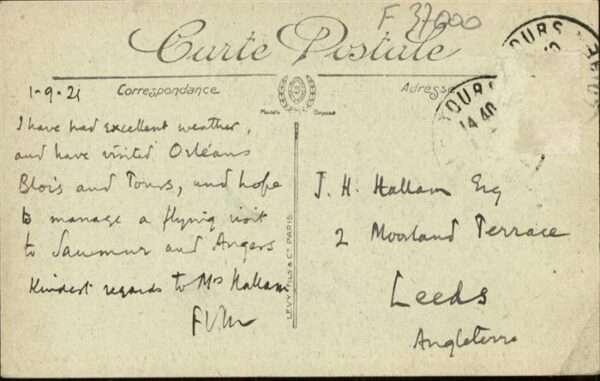 F 37000
Carte Postale
1-9-21
Correspondance
Adresse
TOURS
14 40
TOURS
I have had excellent weather,
and have visited Orléans
Blois and Tours, and hope
to manage a flying visit
to Saumur and Angers
Kindest regards to Mrs Hallam
LEVY FILS & Cie PARIS
J. H. Hallam Esq
2 Moorland Terrace
Leeds
Angleterre